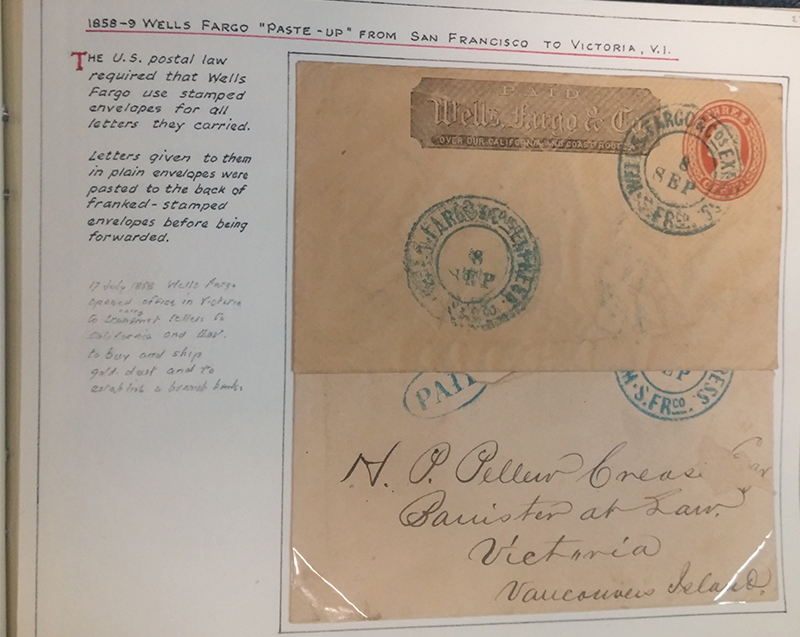 1858-9 WELLS FARGO "PASTE-UP" FROM SAN FRANCISCO TO VICTORIA, V.I.
THE U.S. POSTAL LAW
REQUIRED THAT WELLS
FARGO USE STAMPED
ENVELOPES FOR ALL
LETTERS THEY CARRIED.
LETTERS GIVEN TO THEM
IN PLAIN ENVELOPES WERE
PASTED TO THE BACK OF
FRANKED-STAMPED
ENVELOPES BEFORE BEING
FORWARDED.
17 July 1858 Wells Fargo
opened office in Victoria
to carry letters to
California and East.
to buy and ship
gold dust and to
establish a branch bank.
PAID
Wells, Fargo & Co
OVER OUR CALIFORNIA AND COAST ROUTES
THREE
WELLS FARGO & COS EXPRESS
8
SEP
S. FRCO.
WELLS FARGO & COS EXPRESS
8
SEP
S. FRCO
PAID
EP
PRESS. S. FRCO.
H. P. Pellew Crease
Barrister at Law.
Victoria
Vancouvers Island.